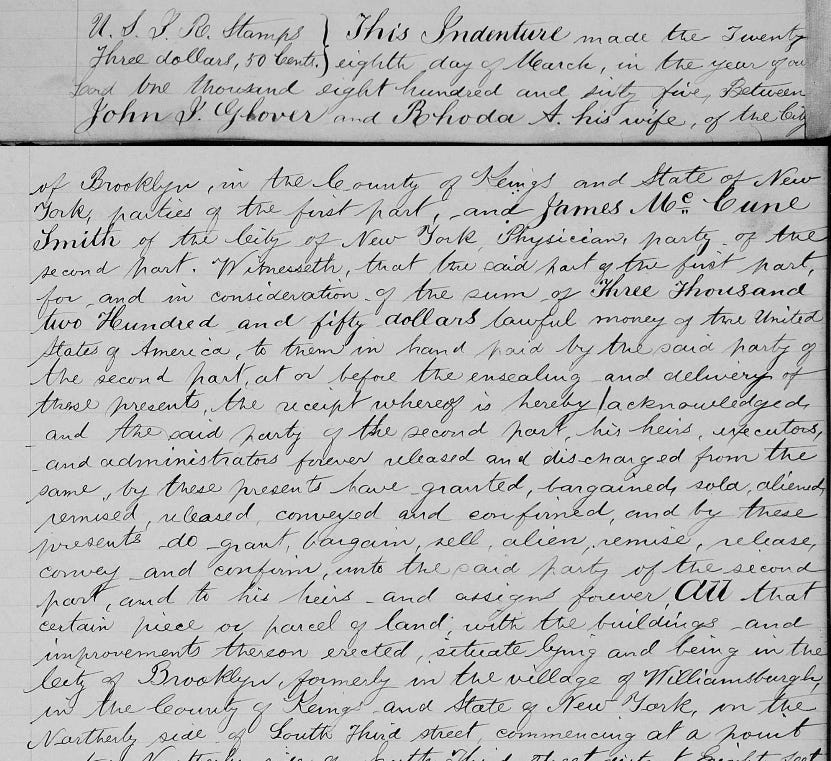 U. S. I. R. Stamps } This Indenture made the Twenty
Three dollars, 50 Cents. } eighth day of March, in the year of our
Lord One thousand eight hundred and sixty five, Between
John J. Glover and Rhoda A. his wife, of the City
of Brooklyn, in the County of Kings and State of New
York, parties of the first part, and James Mc. Cune
Smith of the City of New York, Physician, party of the
second part. Witnesseth, that the said part of the first part,
for and in consideration of the sum of Three Thousand
two Hundred and fifty dollars lawful money of the United
States of America, to them in hand paid by the said party of
the second part, at or before the ensealing and delivery of
these presents, the receipt whereof is hereby acknowledged,
and the said party of the second part, his heirs, executors,
and administrators forever released and discharged from the
same, by these presents have granted, bargained, sold, aliened,
remised, released, conveyed and confirmed, and by these
presents do grant, bargain, sell, alien, remise, release,
convey and confirm, unto the said party of the second
part, and to his heirs and assigns forever, All that
certain piece or parcel of land, with the buildings and
improvements thereon erected, situate lying and being in the
City of Brooklyn, formerly in the village of Williamsburgh,
in the County of Kings and State of New York, on the
Northerly side of South Third street, commencing at a point